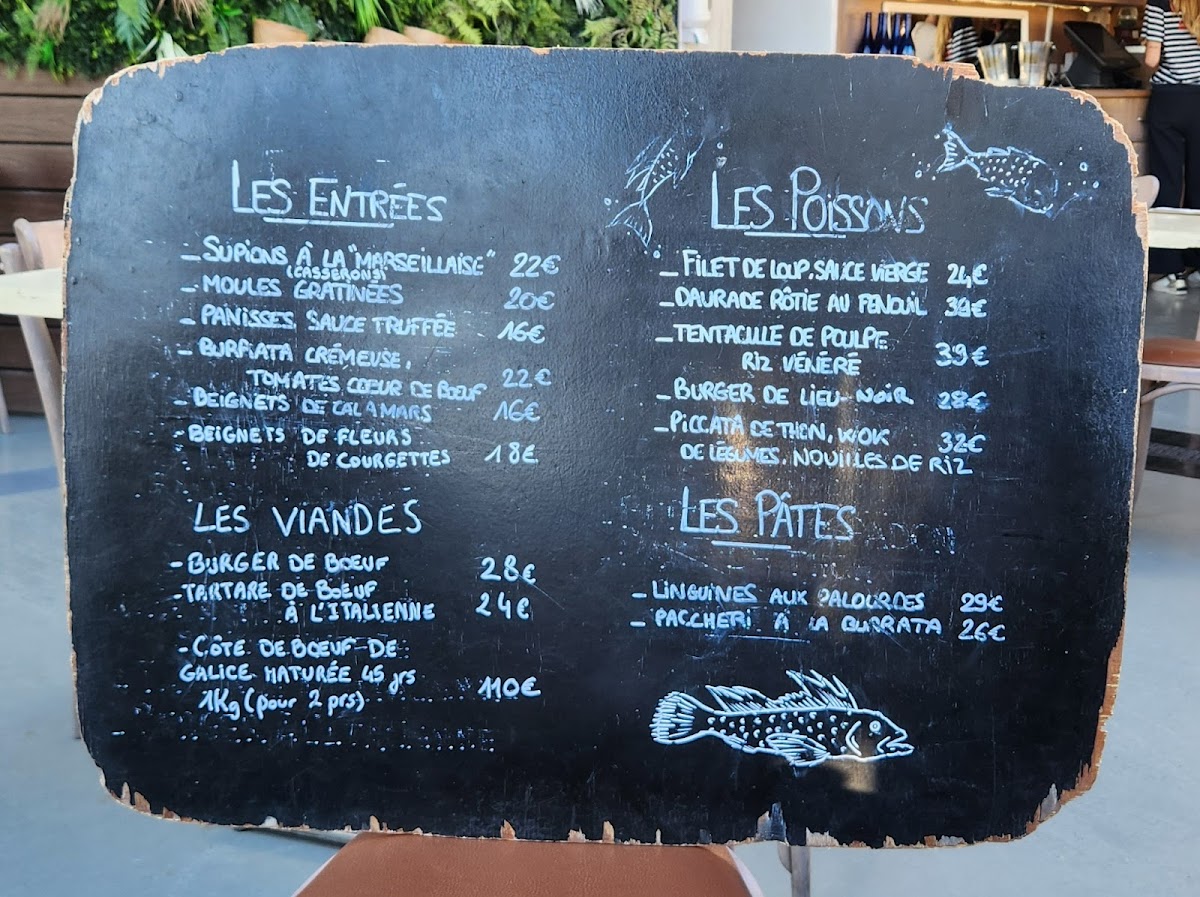 LES ENTRÉES
- SUPIONS À LA "MARSEILLAISE" 22€
(CASSERONS)
- MOULES GRATINÉES 20€
- PANISSES, SAUCE TRUFFÉE 16€
- BURRATA CRÉMEUSE,
TOMATES COEUR DE BŒUF 22€
- BEIGNETS DE CALAMARS 16€
- BEIGNETS DE FLEURS
DE COURGETTES 18€
LES VIANDES
- BURGER DE BŒUF 28€
- TARTARE DE BŒUF
À L'ITALIENNE 24€
- CÔTE DE BŒUF DE
GALICE MATURÉE 45 jrs
1Kg (pour 2 prs) 110€
LES POISSONS
- FILET DE LOUP, SAUCE VIERGE 24€
- DAURADE RÔTIE AU FENOUIL 39€
- TENTACULLE DE POULPE
RIZ VÉNÉRÉ 39€
- BURGER DE LIEU NOIR 28€
- PICCATA DE THON, WOK 32€
DE LÉGUMES, NOUILLES DE RIZ
LES PÂTES
- LINGUINES AUX PALOURDES 29€
- PACCHERI A LA BURRATA 26€